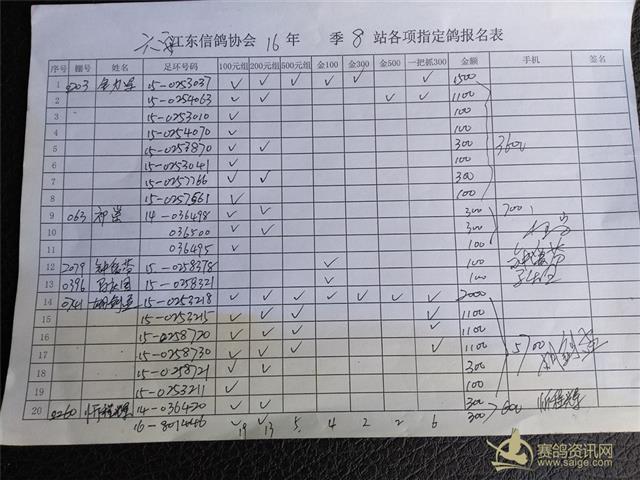 江东信鸽协会 16年 季 8 站各项指定鸽报名表
序号 棚号 姓名 足环号码 100元组 200元组 500元组 金100 金300 金500 一把抓300 金额 手机 签名
1 0203 15-0253037 ✓ ✓ ✓ ✓ ✓ ✓ 1500
2 15-0254063 ✓ ✓ ✓ ✓ 1100
3 15-0253010 ✓ 100
4 15-0254070 ✓ 100
5 15-0253870 ✓ ✓ 300 3600
6 15-0253041 ✓ 100
7 15-0257766 ✓ ✓ 300
8 15-0257561 ✓ 100
9 063 14-036498 ✓ ✓ 300 700
10 036500 ✓ ✓ 300
11 036495 ✓ 100
12 2079 15-0258378 ✓ 100
13 0396 15-0258321 ✓ 100
14 15-0253218 ✓ ✓ ✓ ✓ ✓ ✓ ✓ 2000
15 15-0253215 ✓ ✓ ✓ ✓ 1100
16 15-0258720 ✓ ✓ ✓ ✓ 1100
17 15-0258730 ✓ ✓ ✓ ✓ 1100 5700
18 15-0258721 ✓ ✓ 300
19 15-0253211 ✓ 100
20 0260 14-036420 ✓ ✓ 300 600
16-801446 ✓ ✓ 300
19 13 5 4 2 2 6
赛鸽资讯网
www.saige.com